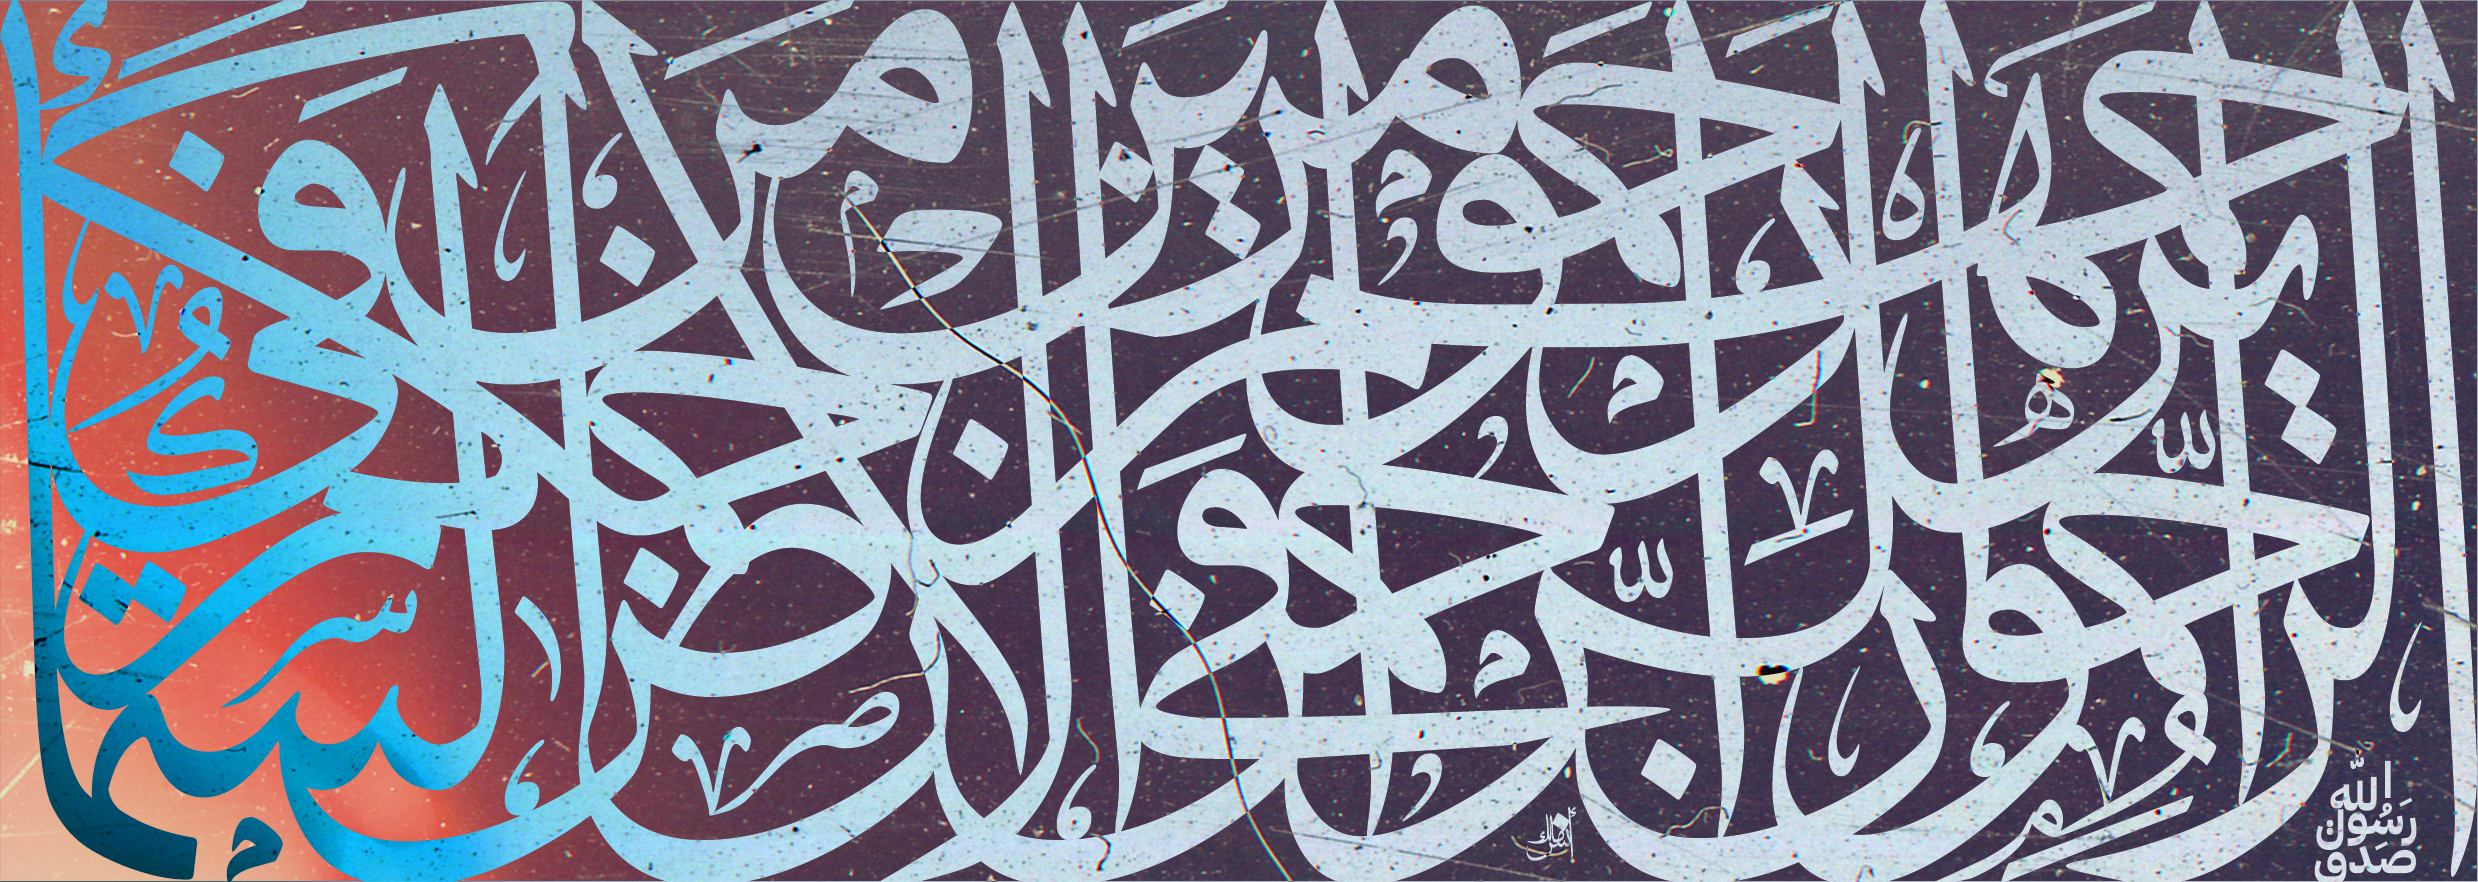 الراحمون يرحمهم الرحمن ارحموا من في الأرض يرحمكم من في السماء
صدق
رسول
الله